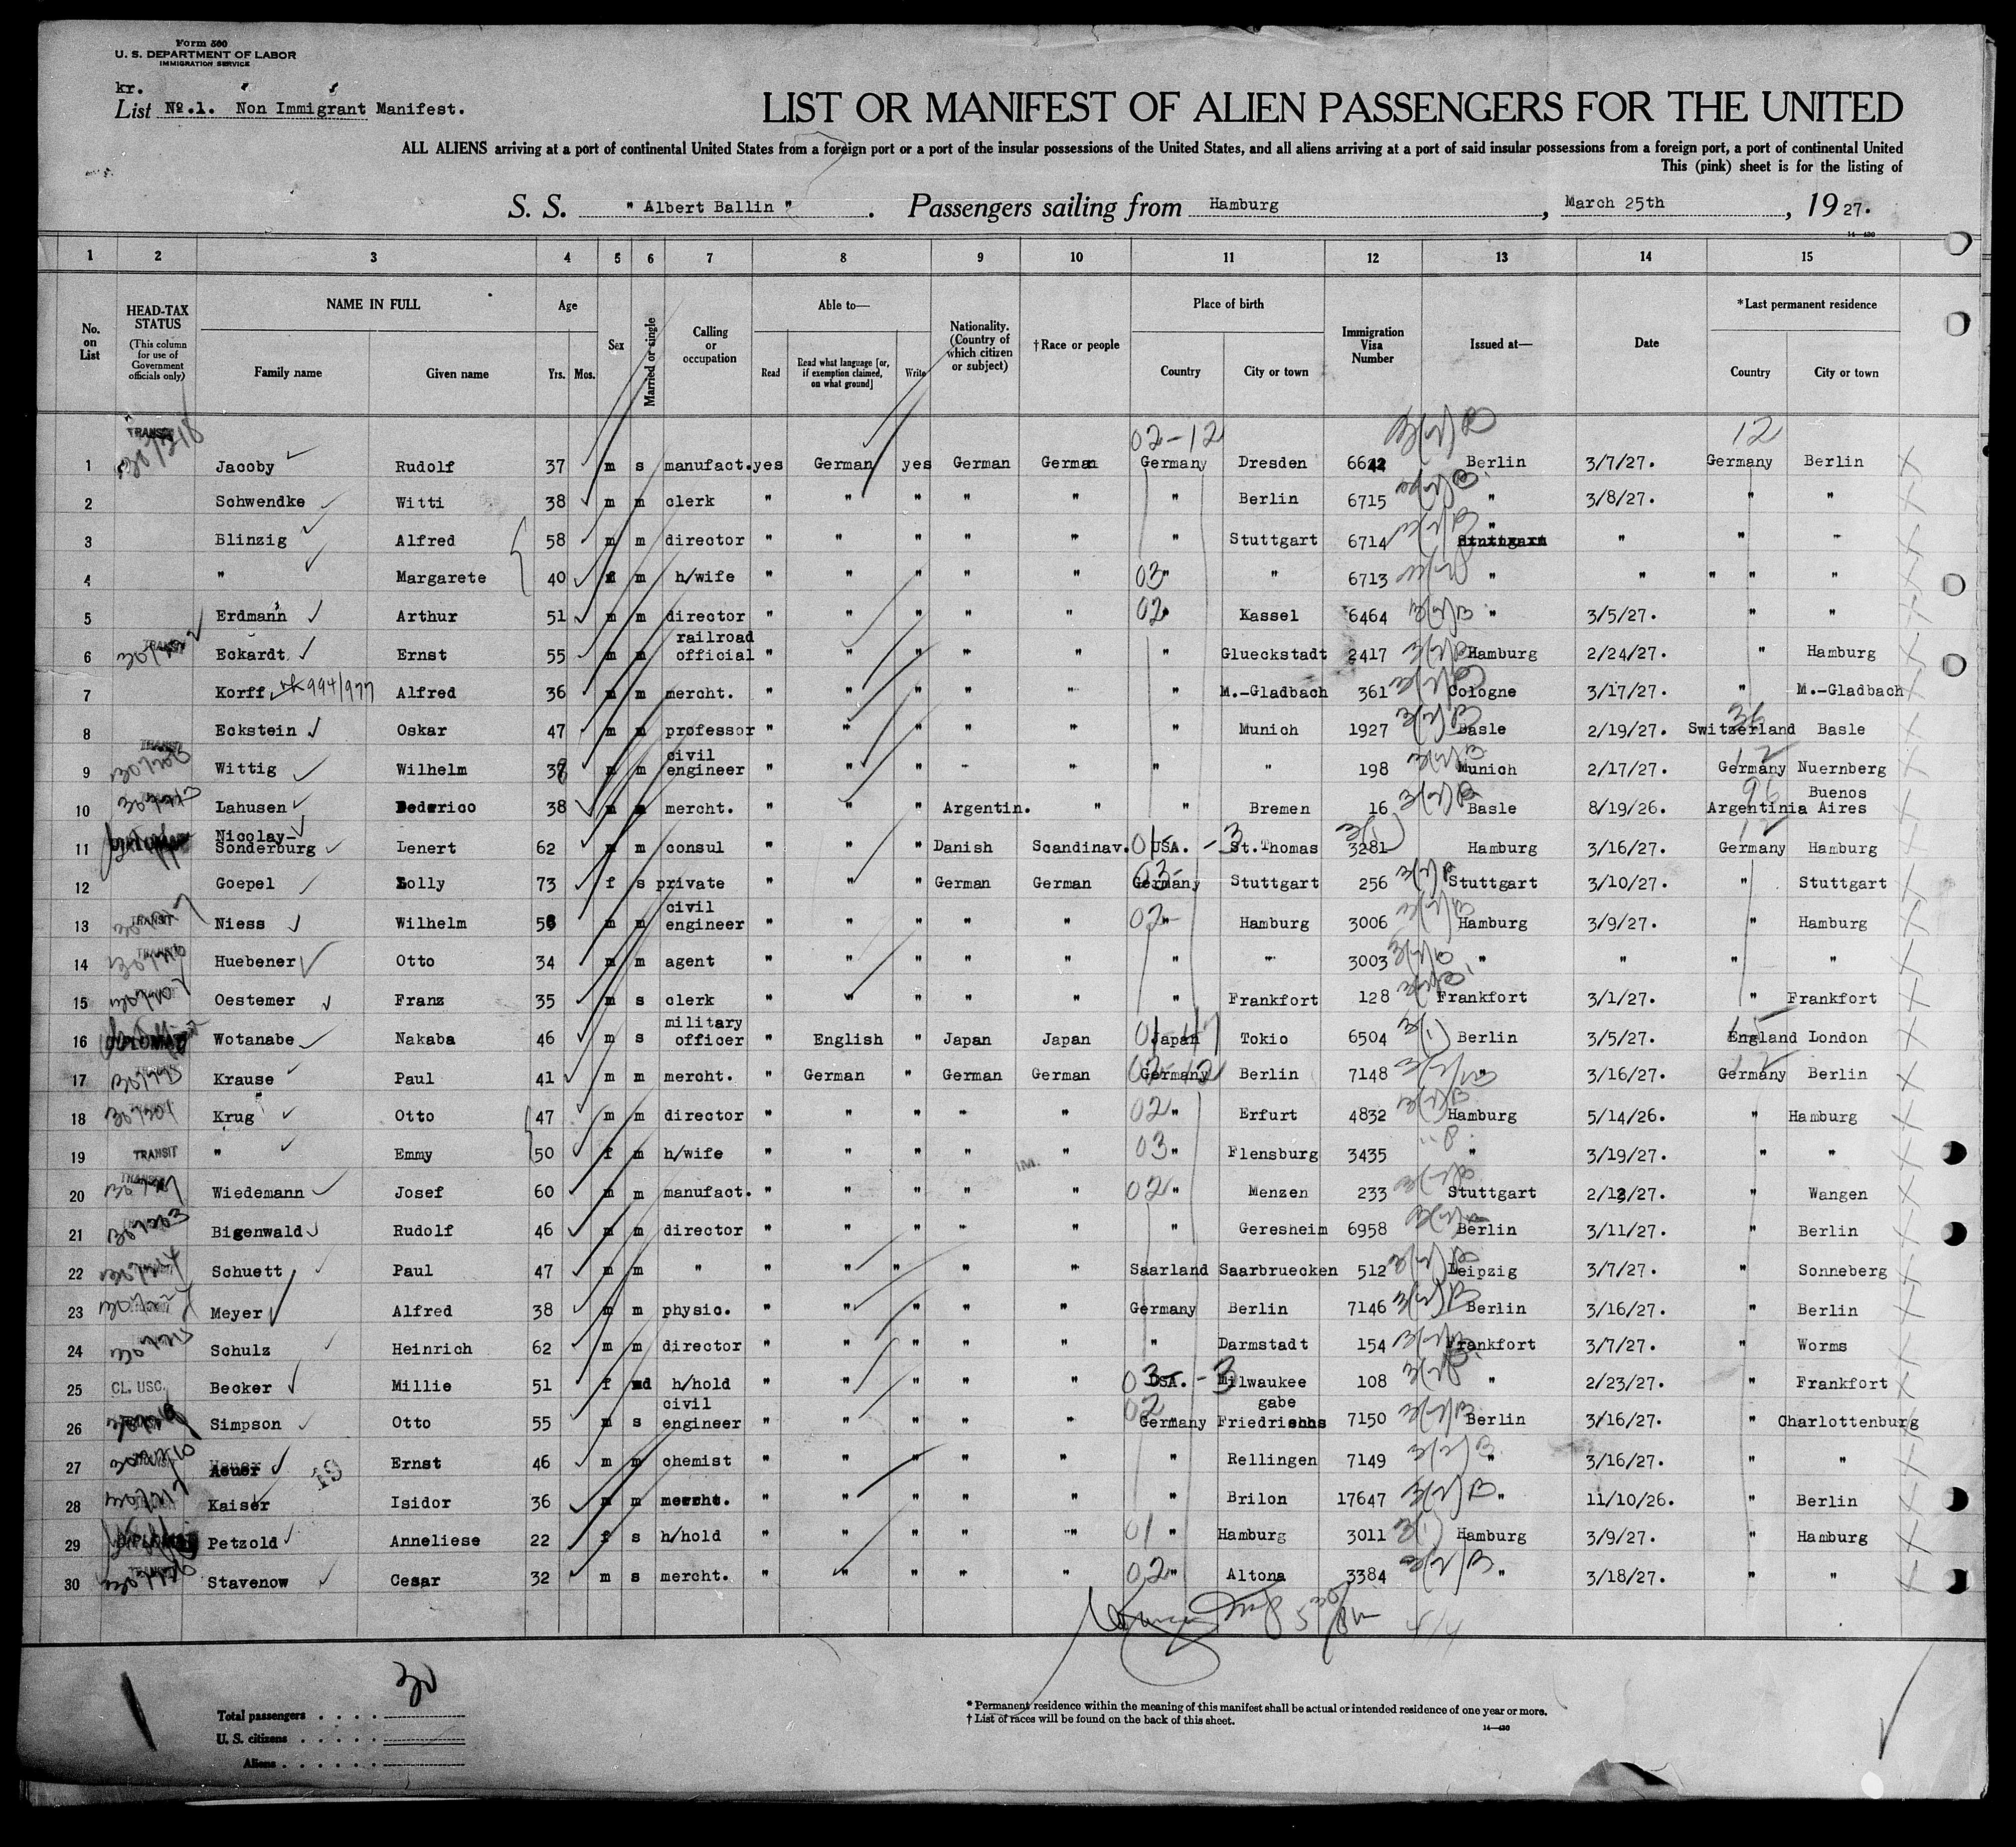 Form 500
U. S. DEPARTMENT OF LABOR
IMMIGRATION SERVICE
kr.
List No.1. Non Immigrant Manifest.
LIST OR MANIFEST OF ALIEN PASSENGERS FOR THE UNITED
ALL ALIENS arriving at a port of continental United States from a foreign port or a port of the insular possessions of the United States, and all aliens arriving at a port of said insular possessions from a foreign port, a port of continental United
This (pink) sheet is for the listing of
S. S. " Albert Ballin ". Passengers sailing from Hamburg, March 25th, 19 27.
1 2 3 4 5 6 7 8 9 10 11 12 13 14 15
No. on List
HEAD-TAX STATUS (This column for use of Government officials only)
NAME IN FULL Family name Given name
Age Yrs. Mos.
Sex
Married or single
Calling or occupation
Able to— Read Read what language [or, if exemption claimed, on what ground] Write
Nationality. (Country of which citizen or subject)
†Race or people
Place of birth Country City or town
Immigration Visa Number
Issued at—
Date
*Last permanent residence Country City or town
02-12 12
1 TRANSIT Jacoby Rudolf 37 m s manufact. yes German yes German German Germany Dresden 6642 Berlin 3/7/27. Germany Berlin
2 Schwendke Witti 38 m m clerk " " " " " " Berlin 6715 " 3/8/27. " "
3 Blinzig Alfred 58 m m director " " " " " " Stuttgart 6714 " " " "
4 " Margarete 40 f m h/wife " " " " " 03 " " 6713 " " " " "
5 Erdmann Arthur 51 m m director " " " " " 02 " Kassel 6464 " 3/5/27. " "
6 TRANSIT Eckardt Ernst 55 m m railroad official " " " " " " Glueckstadt 2417 Hamburg 2/24/27. " Hamburg
7 Korff 994/977 Alfred 36 m m mercht. " " " " " " M.-Gladbach 361 Cologne 3/17/27. " M.-Gladbach
8 Eckstein Oskar 47 m m professor " " " " " " Munich 1927 Basle 2/19/27. Switzerland Basle
9 TRANSIT Wittig Wilhelm 38 m m civil engineer " " " " " " " 198 Munich 2/17/27. 12 Germany Nuernberg
10 Lahusen Federico 38 m m mercht. " " " Argentin. " " Bremen 16 Basle 8/19/26. 96 Argentinia Buenos Aires
11 Nicolay-Sonderburg Lenert 62 m m consul " " " Danish Scandinav. 01 USA. -3 St.Thomas 3281 Hamburg 3/16/27. 12 Germany Hamburg
12 Goepel Lolly 73 f s private " " " German German 03 Germany Stuttgart 256 Stuttgart 3/10/27. " Stuttgart
13 TRANSIT Niess Wilhelm 56 m m civil engineer " " " " " 02 " Hamburg 3006 Hamburg 3/9/27. " Hamburg
14 TRANSIT Huebener Otto 34 m m agent " " " " " " " 3003 " " " "
15 Oestemer Franz 35 m s clerk " " " " " " Frankfort 128 Frankfort 3/1/27. " Frankfort
16 DIPLOMAT Wotanabe Nakaba 46 m s military officer " English " Japan Japan 01 Japan Tokio 6504 Berlin 3/5/27. England London
17 Krause Paul 41 m m mercht. " German " German German 02-12 Germany Berlin 7148 " 3/16/27. 12 Germany Berlin
18 Krug Otto 47 m m director " " " " " 02 " Erfurt 4832 Hamburg 5/14/26. " Hamburg
19 TRANSIT " Emmy 50 f m h/wife " " " " " 03 " Flensburg 3435 " 3/19/27. " "
20 TRANSIT Wiedemann Josef 60 m m manufact. " " " " " 02 " Menzen 233 Stuttgart 2/12/27. " Wangen
21 Bigenwald Rudolf 46 m m director " " " " " " Geresheim 6958 Berlin 3/11/27. " Berlin
22 Schuett Paul 47 m m " " " " " " Saarland Saarbruecken 512 Leipzig 3/7/27. " Sonneberg
23 Meyer Alfred 38 m m physic. " " " " " Germany Berlin 7146 Berlin 3/16/27. " Berlin
24 Schulz Heinrich 62 m m director " " " " " " Darmstadt 154 Frankfort 3/7/27. " Worms
25 CL. USC. Becker Millie 51 f wd h/hold " " " " " 03 USA. -3 Milwaukee 108 " 2/23/27. " Frankfort
26 Simpson Otto 55 m s civil engineer " " " " " 02 Germany Friedrichsgabe 7150 Berlin 3/16/27. " Charlottenburg
27 Ernst 46 m m chemist " " " " " " Rellingen 7149 " 3/16/27. " "
28 Kaiser Isidor 36 m m mercht. " " " " " " Brilon 17647 " 11/10/26. " Berlin
29 DIPLOMAT Petzold Anneliese 22 f s h/hold " " " " " 01 " Hamburg 3011 Hamburg 3/9/27. " Hamburg
30 TRANSIT Stavenow Cesar 32 m s mercht. " " " " " 02 " Altona 3384 " 3/18/27. " "
Total passengers . . . . 30
U. S. citizens . . . . .
Aliens . . . . . .
* Permanent residence within the meaning of this manifest shall be actual or intended residence of one year or more.
† List of races will be found on the back of this sheet.
14—430